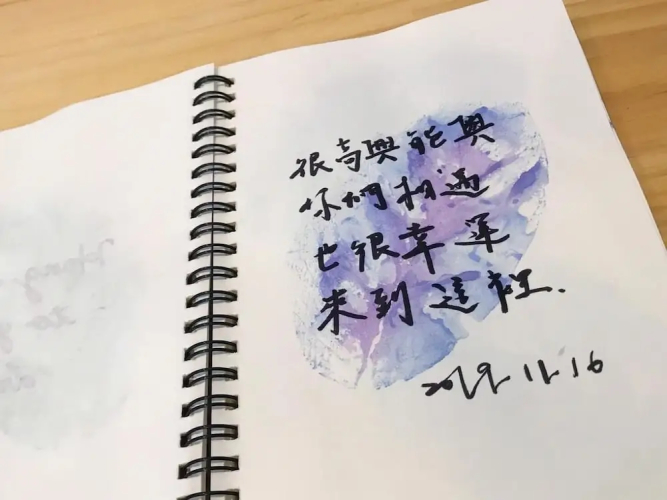 很高興能與
你們相遇
也很幸運
來到這裡.
2019.11.16